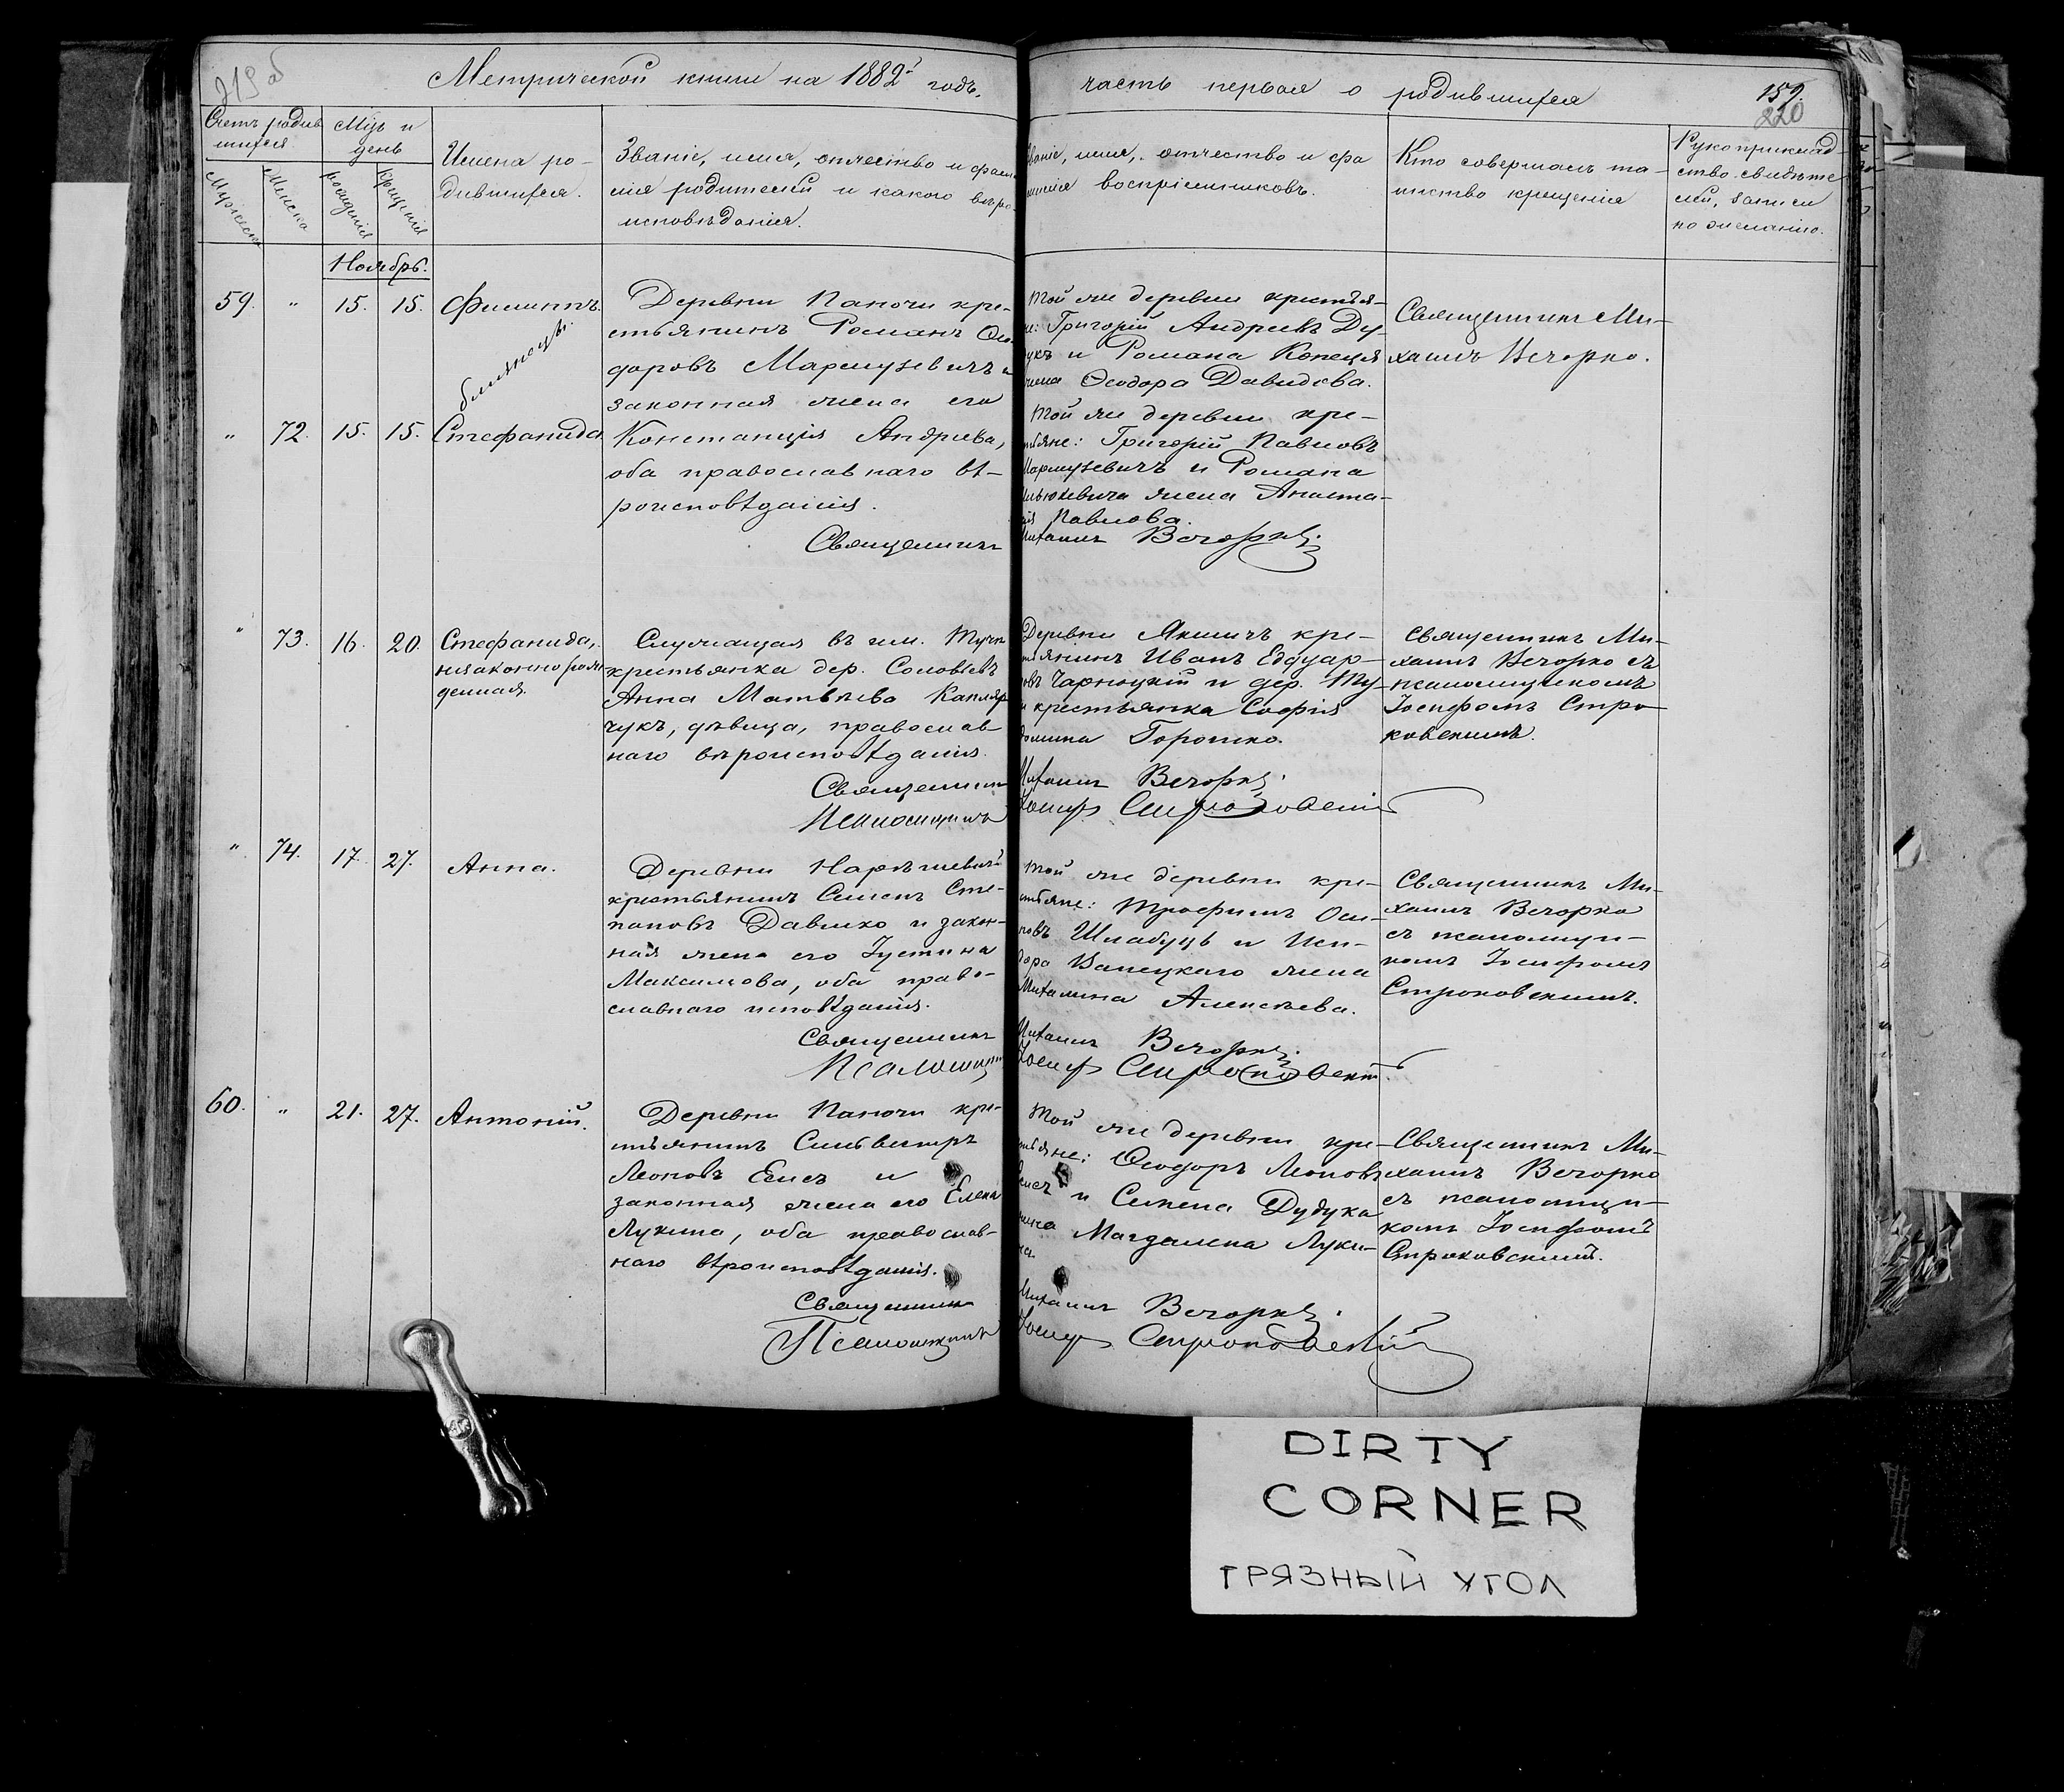 219 об
Метрической книги на 1882й годъ,
часть первая о родившихся
159.
220
Счетъ родив
шихся
Мужеска
Женска
Мцъ и
день
рожденія
крещенія
Имена ро-
дившихся.
Званіе, имя, отчество и фами
лія родителей и какого вѣро-
исповѣданія.
званіе, имя, отчество и фа
милія воспріемниковъ.
Кто совершалъ та-
инство крещенія
Рукоприклад
ство свидѣте
лей, записи
по желанію.
Ноябрь.
59. " 15. 15. Филиппъ.
близнецы.
Деревни Паночи кре-
стьянинъ Романъ Си-
доровъ Мармузевичъ и
законная жена его
Констанція Андреева,
оба православнаго вѣ-
роисповѣданія.
Священникъ
Той же деревни крестья-
не: Григорій Андреевъ Ду-
дукъ и Романа Копеця
жена Ѳеодора Давидова.
Священникъ Ми-
хаилъ Вечорко.
" 72. 15. 15. Стефанида
Той же деревни кре-
стьяне: Григорій Павловъ
Мармузевичъ и Романа
жена Анаста-
сія Павлова.
Михаилъ Вечорко.
" 73. 16. 20. Стефанида,
незаконно рож
денная.
Служащая въ им. Тучи
крестьянка дер. Соловьевъ
Анна Матвѣева Капляр
чукъ, дѣвица, православ
наго вѣроисповѣданія.
Священникъ
Псаломщикъ
Деревни Якшичъ кре-
стьянинъ Иванъ Едуар-
овъ Чарноцкій и дер. Ту-
и крестьянка Софія
Горошко.
Михаилъ Вечорко.
Іосифъ Строковскій
Священникъ Ми-
хаилъ Вечорко съ
псаломщикомъ
Іосифомъ Стро-
ковскимъ.
" 74. 17. 27. Анна.
Деревни
крестьянинъ Семенъ Сте-
пановъ Давыко и закон-
ная жена его Іустина
Максимова, оба право-
славнаго исповѣданія.
Священникъ
Псаломщикъ
Той же деревни кре-
стьяне: Трофимъ Оси-
повъ и Иси-
дора Капецкаго жена
Михалина Алексѣева.
Михаилъ Вечорко.
Іосифъ Строковскій.
Священникъ Ми-
хаилъ Вечорко
съ псаломщи-
комъ Іосифомъ
Строковскимъ.
60. " 21. 27. Антоній.
Деревни Паночи кре-
стьянинъ Сильвестръ
Леоновъ Емсъ и
законная жена его Елена
Лукина, оба православ-
наго вѣроисповѣданія.
Священникъ
Псаломщикъ
Той же деревни кре-
стьяне: Ѳеодоръ Леоновъ
Емсъ и Семена Дудука
жена Магдалена Луки-
на.
Михаилъ Вечорко.
Іосифъ Строковскій
Священникъ Ми-
хаилъ Вечорко
съ псаломщи-
комъ Іосифомъ
Строковскимъ.
DIRTY
CORNER
ГРЯЗНЫЙ УГОЛ